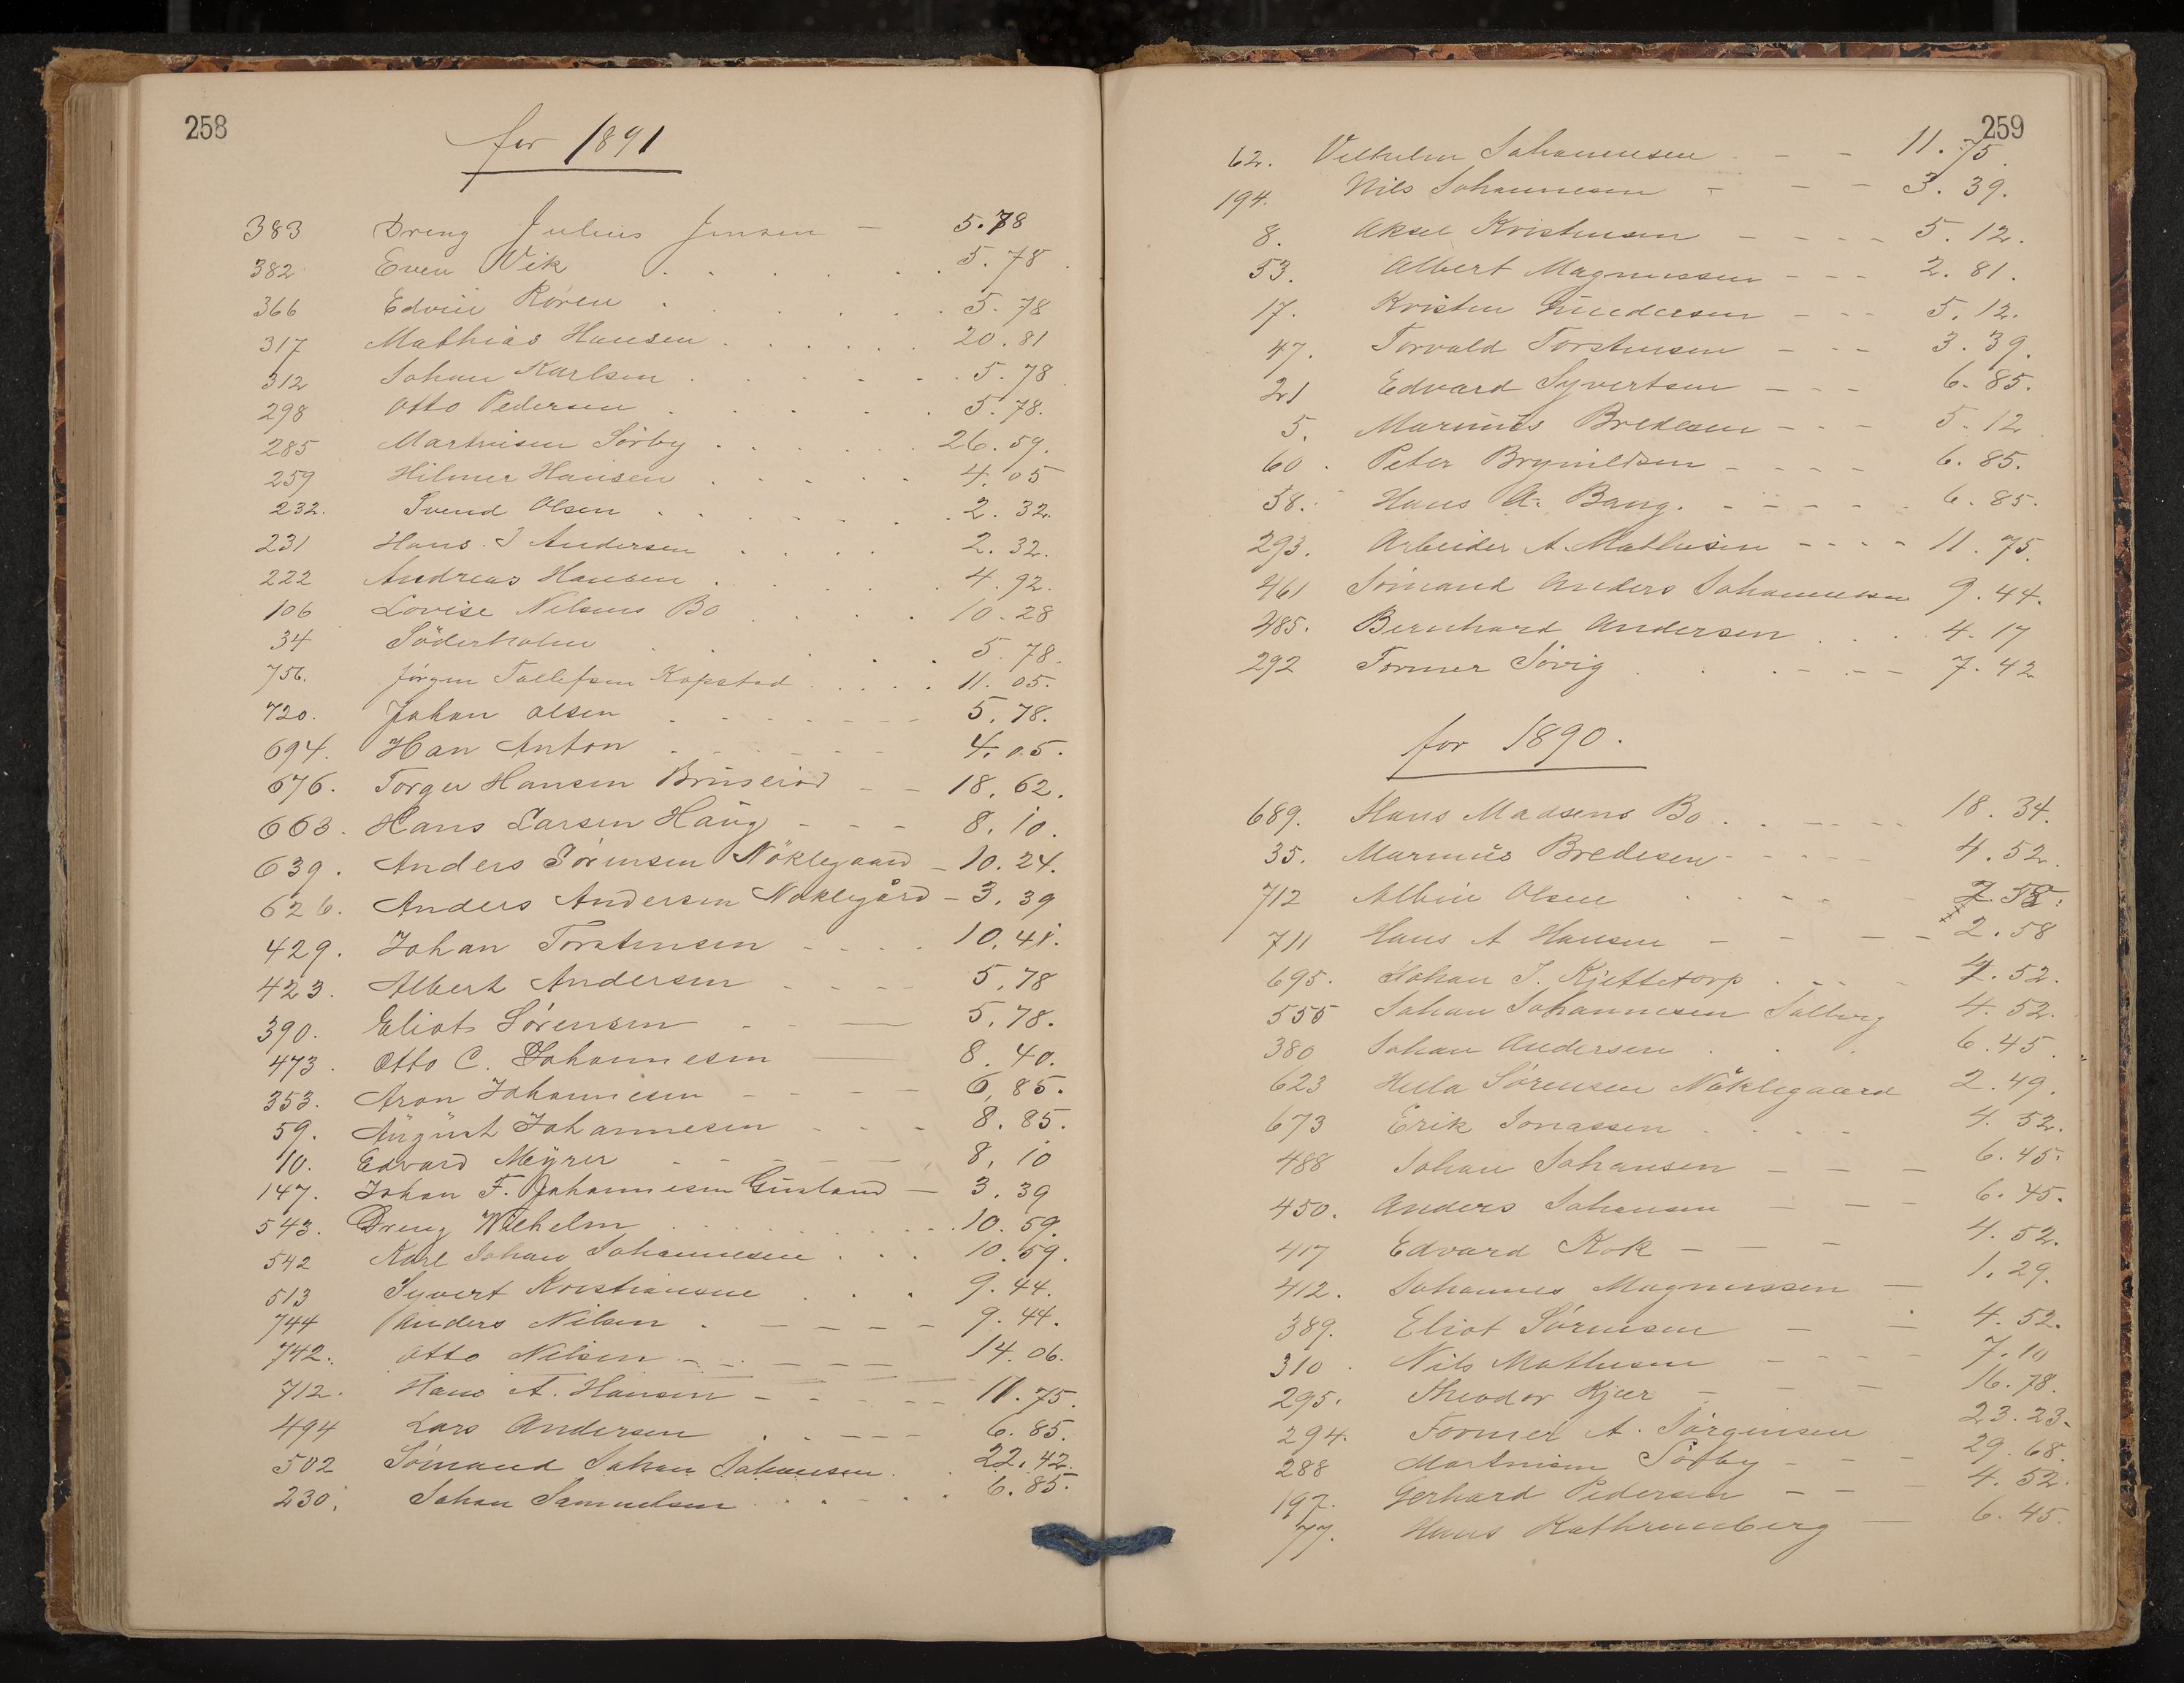 258
for 1891
383 Dreng Julius Jensen – 5.78
382 Even Vik . . . . . . 5.78
366 Edvin Røren . . . . . . 5.78
317 Mathias Hansen . . . . . . 20.81
312 Johan Karlsen . . . . . . 5.78
298 Otto Pedersen . . . . . 5.78.
285 Martinisen Sørby . . . . . . 26.59.
259 Hilmer Hansen . . . . . 4.05
232. Svend Olsen . . . . . . 2.32.
231 Hans. J Andersen . . . . 2.32.
222 Andreas Hansen . . . . 4.92.
106 Lovise Nilsens Bo . . . . 10.28
34 Söderholm . . . . . 5.78.
756. Jørgen Tollefsen Kopstad . . . . . 11.05.
720. Johan Olsen . - - - - - - 5.78.
694. Han Anton . . - - - - 4.05.
676. Torger Hansen Brüserød - - 18.62.
663. Hans Larsen Haüg - - - 8.10.
639. Anders Sørensen Nöklegaard – 10.24.
626. Anders Andersen Noklegård – 3.39
429. Johan Torstensen - - - - 10.41.
423. Albert Andersen - - - - 5.78
390. Eliot Sørensen - - — 5.78.
473. Otto C. Johannesen — 8.40.
353. Aron Johannesen - - - - 6,85.
59. Aügüst Johannesen - - - 8.85.
10. Edvard Meÿrer - - - - - 8,10
147. Johan F. Johannesen Gusland — 3.39
543. Dreng Wilhelm . . . . . . . 10.59.
542 Karl Johan Johannesen . . . 10.59.
513 Syvert Kristiansen . . . 9.44.
744 Anders Nilsen . – – – – – 9.44.
742. Otto Nilsen - - - – – – 14.06.
712. Hans A. Hansen - - - - - 11.75.
494 Lars Andersen . . - – – – 6.85.
502 Sømand Johan Johansen . . 22.42.
230. Johan Samuelsen . . . . . . 6.85.
259
62. Vilhelm Johannesen – – 11.75.
194. Nils Johannesen – – – 3.39.
8. Aksel Kristensen – – – – 5.12.
53. Albert Magnussen – – – 2.81.
17. Kristen Gundersen – – – 5.12.
47. Torvald Torstensen – – – 3.39.
21 Edvard Syvertsen – – – 6.85.
5. Marinüs Bredesen – – – 5.12
60. Peter Brynildsen – – – – 6.85.
58. Hans A. Bang. - - - - - . 6.85.
293. Arbeider A. Mathisen – – – – 11.75.
461 Sømand Anders Johannesen 9.44.
485. Bernhard Andersen . . . 4.17
292 Former Søvig . . - - – – 7.42
for 1890.
689. Hans Madsens Bo . . - - - - 18.34.
35. Marinüs Bredesen - - - - - 4.52.
712 Albin Olsen . . - - - 2.58.
711 Hans A Hansen – – – – 2.58
695. Johan J. Kjettetorp . - - - 4.52.
555 Johan Johannesen Solberg 4.52.
380 Johan Andersen . . . 6.45.
623 Hella Sørensen Nöklegaard 2.49.
673 Erik Jonassen . . . - 4.52.
488 Johan Johansen – – – 6.45.
450. Anders Johansen – – – 6.45.
417 Edvard Kok – – – 4.52.
412. Johannes Magnussen – 1.29.
389. Eliot Sørensen – – 4.52.
310. Nils Mathesen – – – – 7.10
295. Theodor Kjær – – – 16.78.
294. Former A. Jørgensen 23.23.
288 Martinisen Sørby – – – 29.68.
197. Gerhard Pedersen – – – 4.52.
77. Hans Kathrineberg — 6.45.